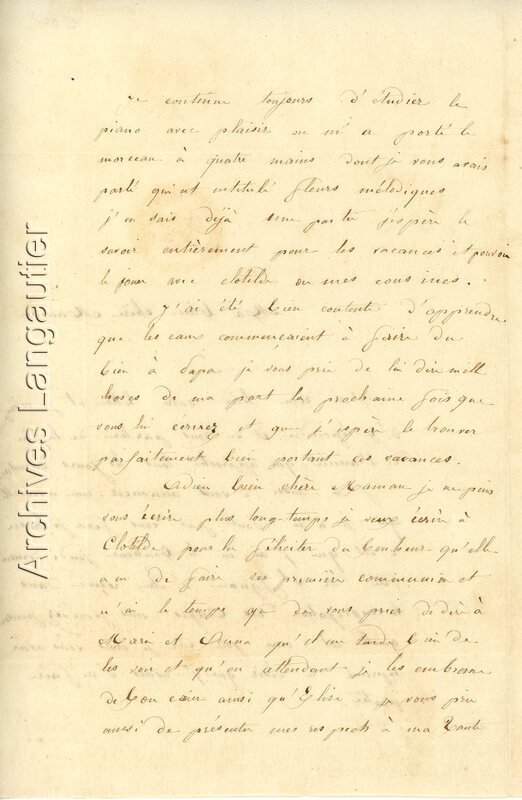 Je continue toujours d'étudier le
piano avec plaisir on m'a porté le
morceau à quatre mains dont je vous avais
parlé qui est intitulé fleurs mélodiques
j'en sais déjà une partie j'espère le
savoir entièrement pour les vacances et pouvoir
le jouer avec Clotilde ou mes cousines.
J'ai été bien contente d'apprendre
que les eaux commençaient à faire du
bien à Papa je vous prie de lui dire mille
choses de ma part la prochaine fois que
vous lui écrirez et que j'espère le trouver
parfaitement bien portant ces vacances.
Adieu bien chère Maman je ne puis
vous écrire plus long-temps je veux écrire à
Clotilde pour la féliciter du bonheur qu'elle
a eu de faire sa première communion et
n'ai le temps que de vous prier de dire à
Marie et Anna qu'il me tarde bien de
les voir et qu'en attendant je les embrasse
de bon cœur ainsi qu'Élise je vous prie
aussi de présenter mes respects à ma tante
Archives Langautier